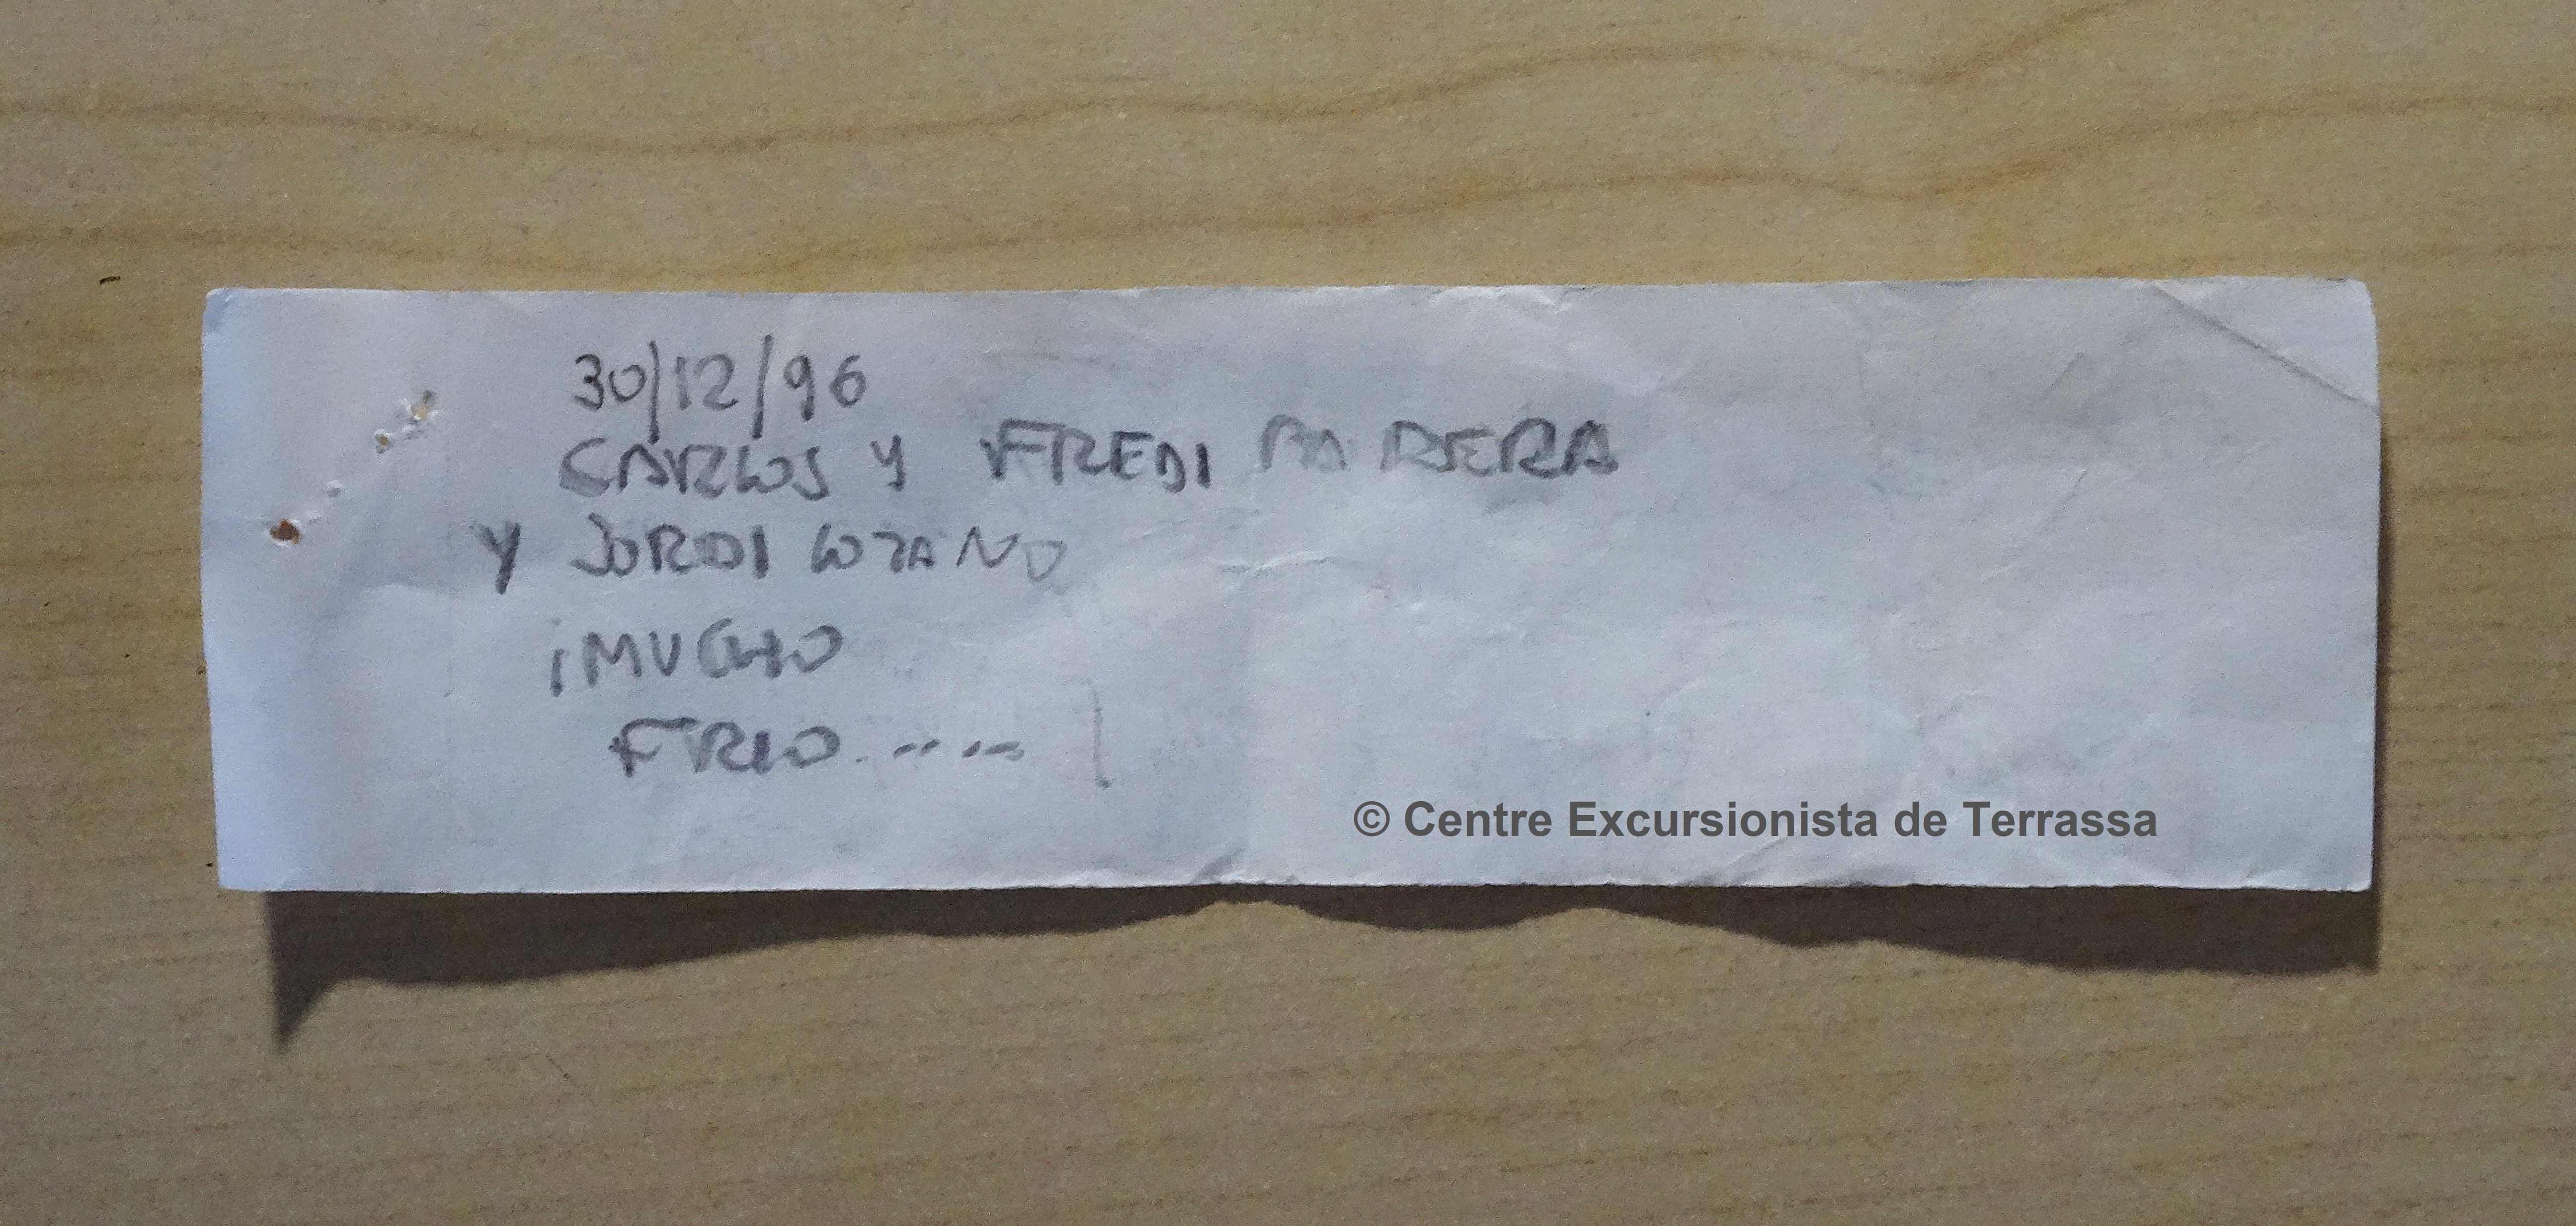 30/12/96
CARLOS Y FREDI PARERA
Y JORDI LOZANO
¡MUCHO
FRIO.....!
© Centre Excursionista de Terrassa